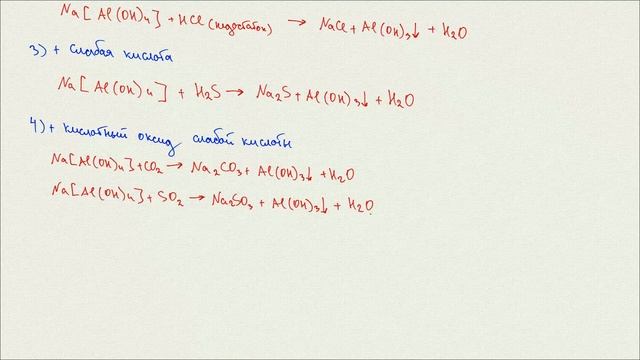 Na[Al(OH)₄] + HCl (недостаток) → NaCl + Al(OH)₃↓ + H₂O
3) + слабая кислота
Na[Al(OH)₄] + H₂S → Na₂S + Al(OH)₃↓ + H₂O
4) + кислотный оксид слабой кислоты
Na[Al(OH)₄] + CO₂ → Na₂CO₃ + Al(OH)₃↓ + H₂O
Na[Al(OH)₄] + SO₂ → Na₂SO₃ + Al(OH)₃↓ + H₂O